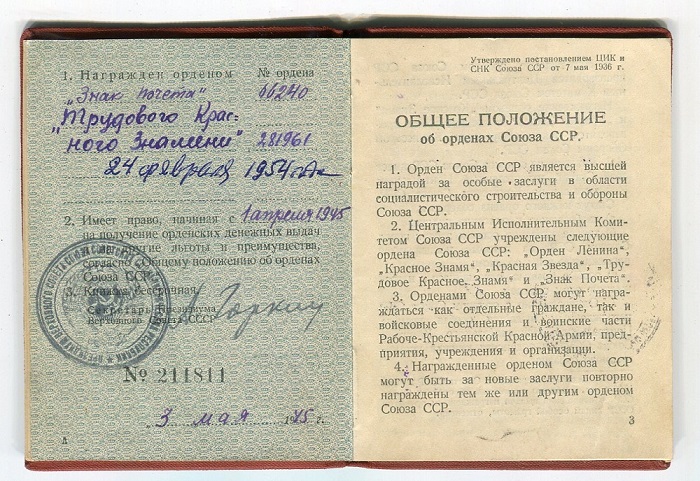 1. Награжден орденом № ордена
„Знак почета“ 66240
„Трудового Крас-
ного Знамени“ 281961
24 февраля 1954 года
2. Имеет право, начиная с 1 апреля 1945
на получение орденских денежных выдач
другие льготы и преимущества,
согласно Общему положению об орденах
Союза ССР.
3. Книжка бессрочная.
Секретарь Президиума
Верховного Совета СССР
Горкин
№ 211811
3 мая 1945 г.
А
Утверждено постановлением ЦИК и
СНК Союза ССР от 7 мая 1936 г.
ОБЩЕЕ ПОЛОЖЕНИЕ
об орденах Союза ССР.
1. Орден Союза ССР является высшей
наградой за особые заслуги в области
социалистического строительства и обороны
Союза ССР.
2. Центральным Исполнительным Коми-
тетом Союза ССР учреждены следующие
ордена Союза ССР: „Орден Ленина“,
„Красное Знамя“, „Красная Звезда“, „Тру-
довое Красное Знамя“ и „Знак Почета“.
3. Орденами Союза ССР могут награ-
ждаться как отдельные граждане, так и
войсковые соединения и воинские части
Рабоче-Крестьянской Красной Армии, пред-
приятия, учреждения и организации.
4. Награжденные орденом Союза ССР
могут быть за новые заслуги повторно
награждены тем же или другим орденом
Союза ССР.
3